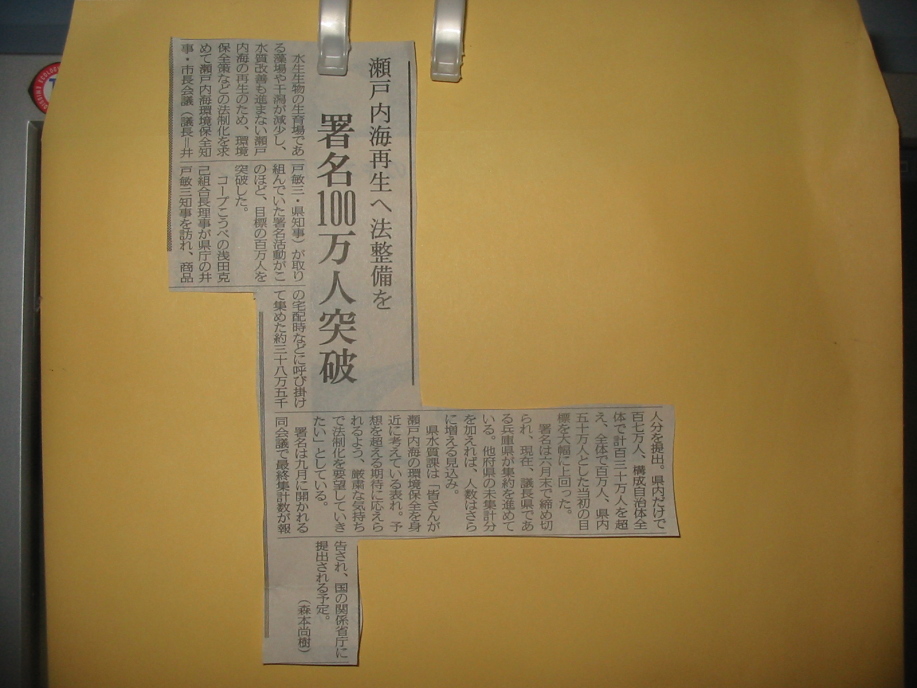 瀬戸内海再生へ法整備を
署名100万人突破
水生生物の生育場であ
る藻場や干潟が減少し、
水質改善も進まない瀬戸
内海の再生のため、環境
保全策などの法制化を求
めて瀬戸内海環境保全知
事・市長会議(議長=井
戸敏三・県知事)が取り
組んでいた署名活動がこ
のほど、目標の百万人を
突破した。
コープこうべの浅田克
己組合長理事が県庁の井
戸敏三知事を訪れ、商品
の宅配時などに呼び掛け
て集めた約三十八万五千
人分を提出。県内だけで
百七万人、構成自治体全
体で計百三十万人を超
え、全体で百万人、県内
五十万人とした当初の目
標を大幅に上回った。
署名は六月末で締め切
られ、現在、議長県であ
る兵庫県が集約を進めて
いる。他府県の未集計分
を加えれば、人数はさら
に増える見込み。
県水質課は「皆さんが
瀬戸内海の環境保全を身
近に考えている表れ。予
想を超える期待に応えら
れるよう、厳粛な気持ち
で法制化を要望していき
たい」としている。
署名は九月に開かれる
同会議で最終集計数が報
告され、国の関係省庁に
提出される予定。
(森本尚樹)